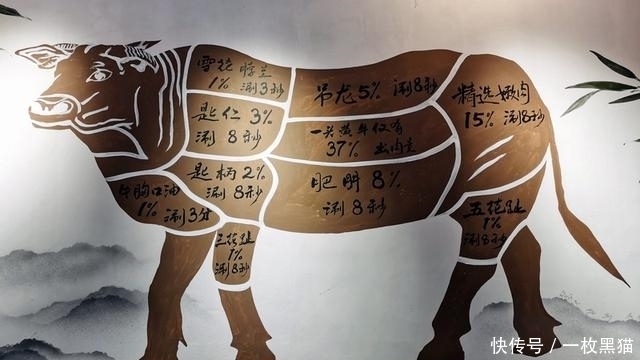 雪花脖兰
1% 涮3秒
匙仁 3%
涮 8秒
匙柄 2%
涮 8秒
牛胸口油
1% 涮3分
三花趾
1%
涮8秒
吊龙5% 涮8秒
一头黄牛仅有
37% 出肉率
肥胼 8%
涮 8秒
精选嫩肉
15% 涮8秒
五花趾
1%
涮8秒
快传号 / 一枚黑猫